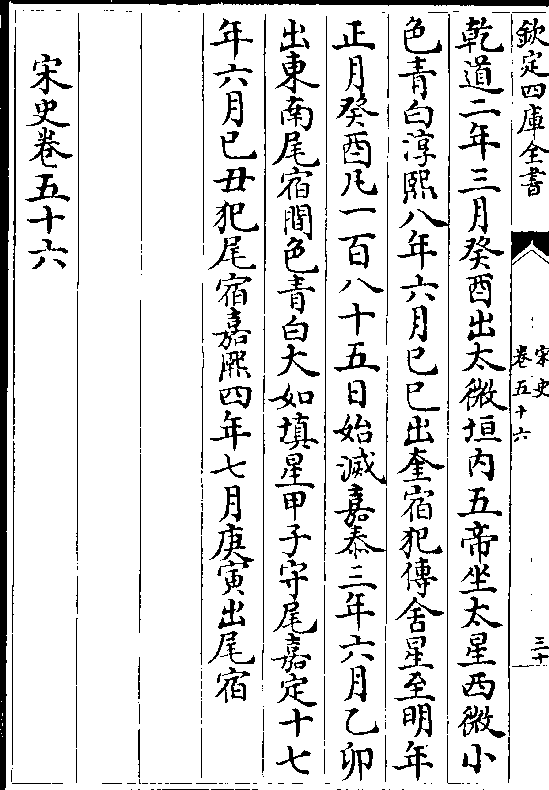 欽定四庫全書
宋史
卷五十六
三十
乾道二年三月癸酉出太微垣内五帝坐太星西微小
色青白淳熙八年六月己巳出奎宿犯傳舍星至明年
正月癸酉凡一百八十五日始滅嘉泰三年六月乙卯
出東南尾宿間色青白大如填星甲子守尾嘉定十七
年六月己丑犯尾宿嘉熙四年七月庚寅出尾宿
宋史卷五十六